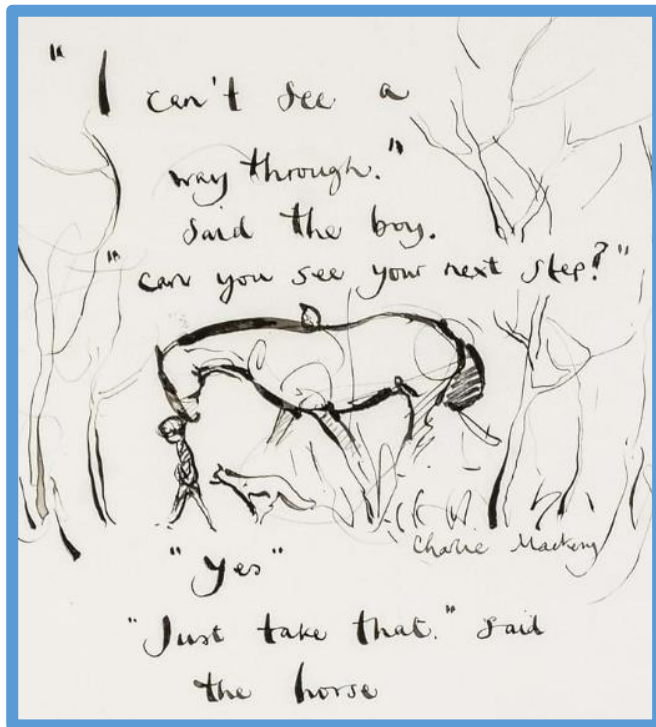 "I can't see a
way through."
said the boy.
"can you see your next step?"
Charlie Mackesy
"Yes"
"Just take that." said
the horse